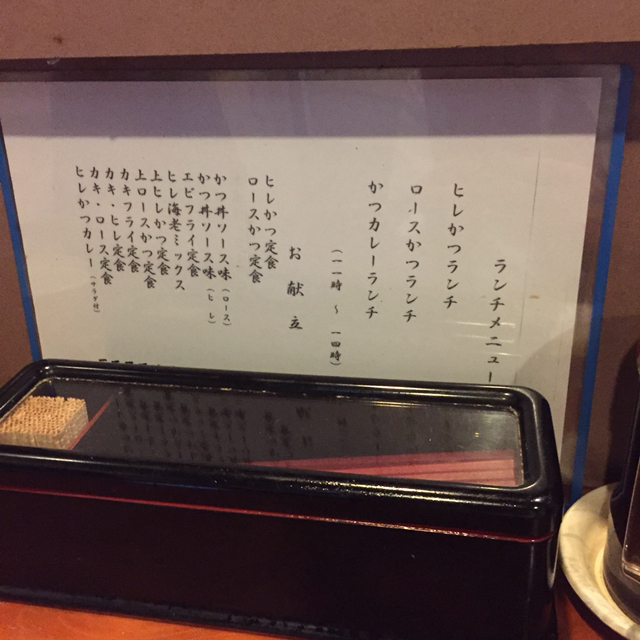 ランチメニュー
ヒレかつランチ
ロースかつランチ
かつカレーランチ
（一一時 ～ 一四時）
お献立
ヒレかつ定食
ロースかつ定食
かつ丼ソース味（ロース）
かつ丼ソース味（ヒレ）
エビフライ定食
ヒレ海老ミックス
上ヒレかつ定食
上ロースかつ定食
カキフライ定食
カキ・ヒレ定食
カキ・ロース定食
ヒレかつカレー（サラダ付）